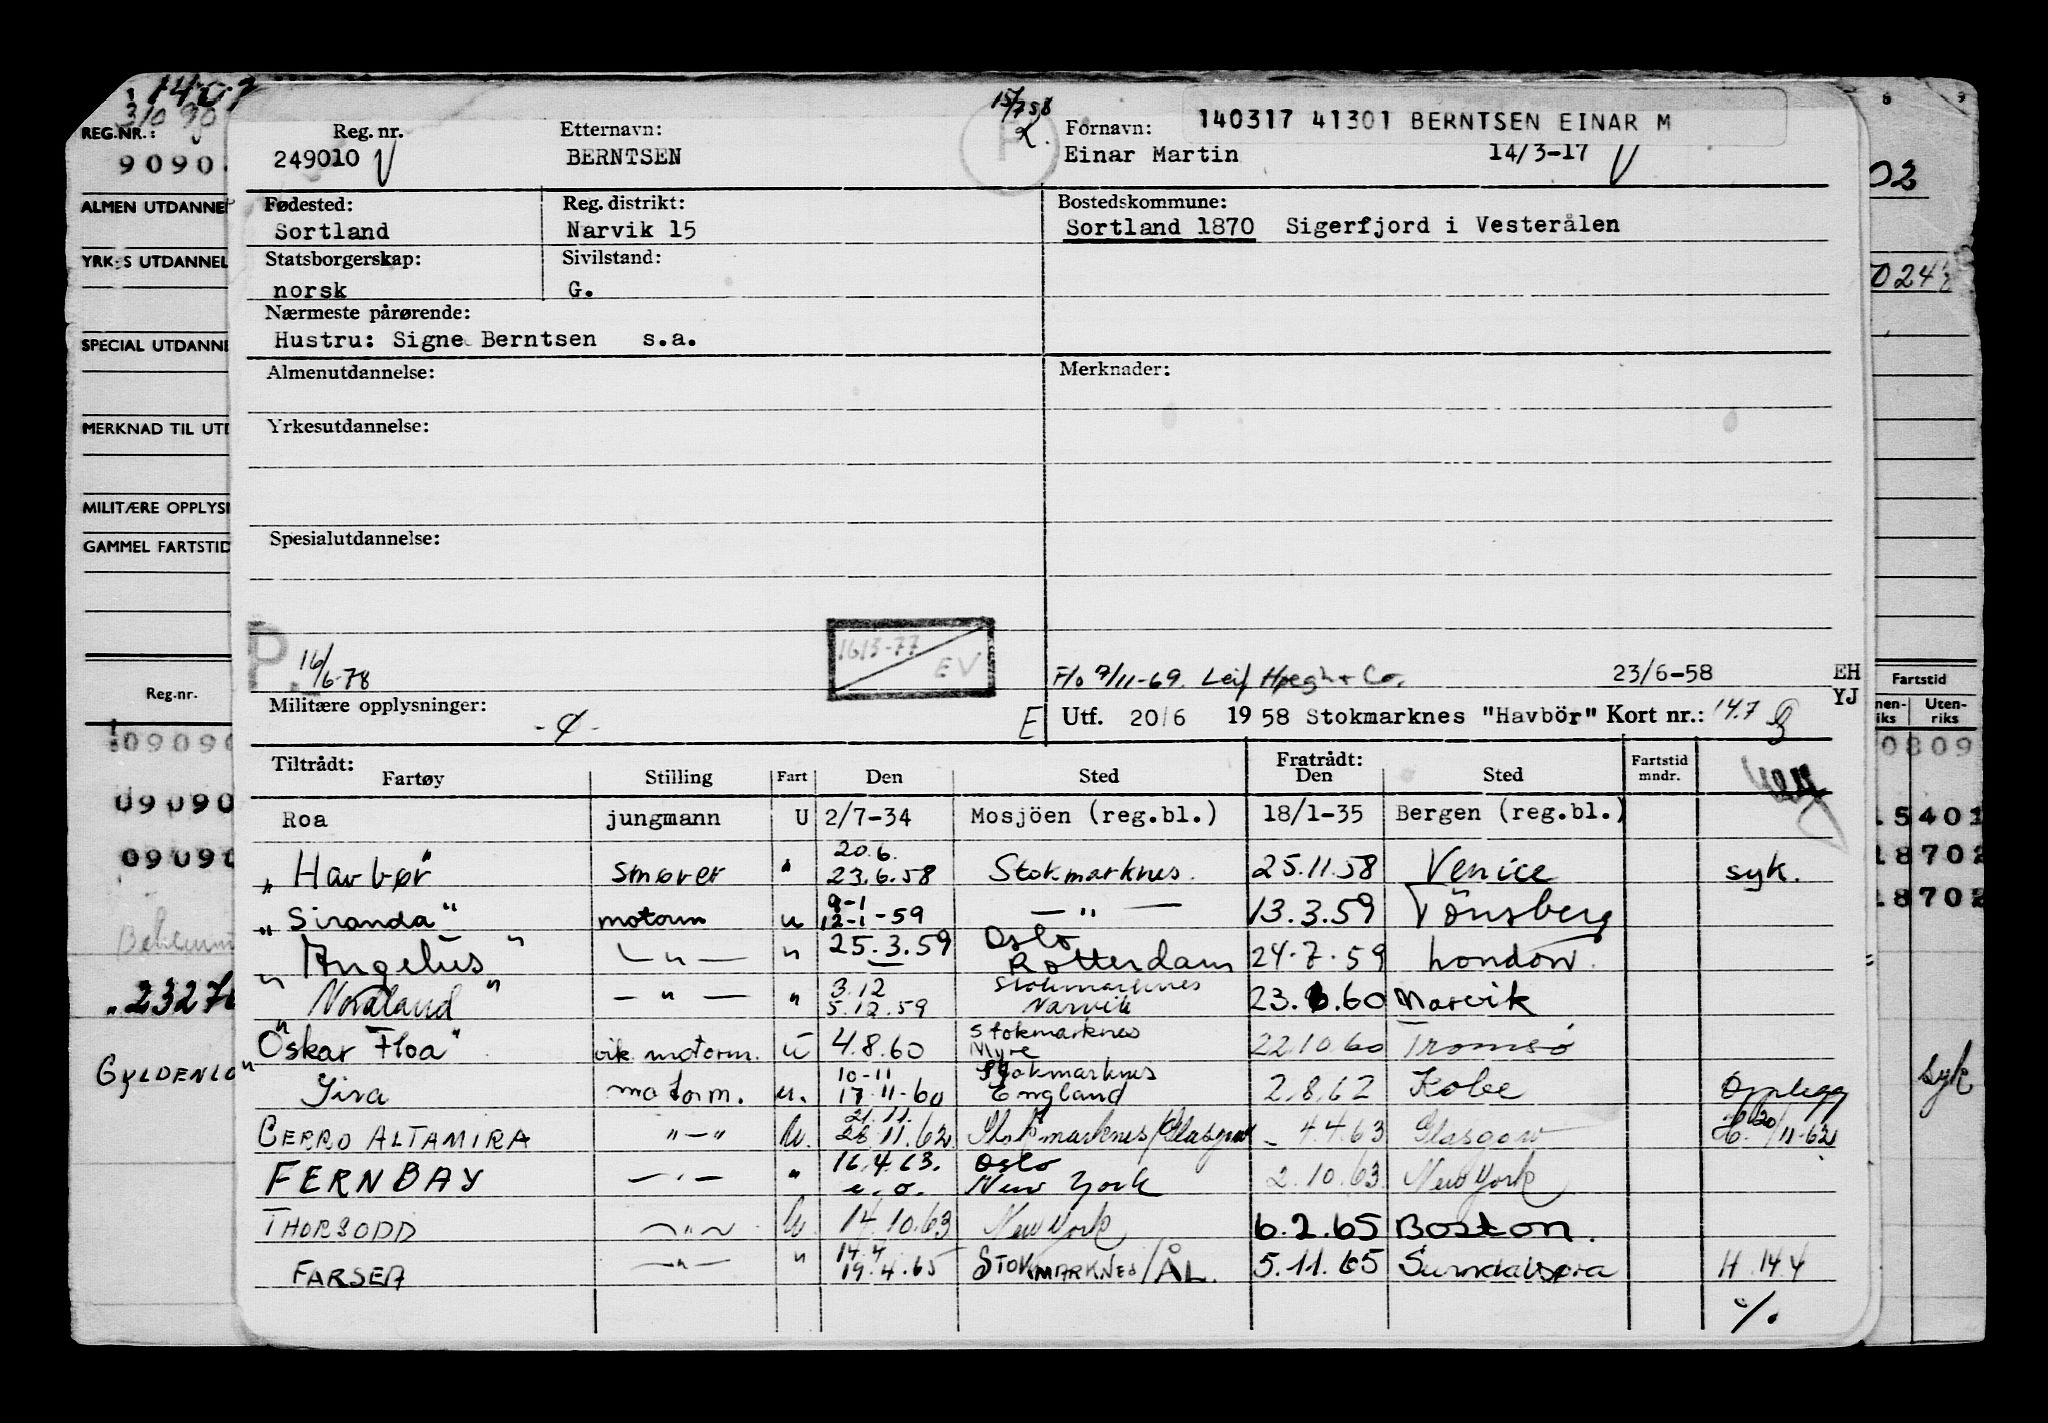 1407
31090
REG.NR.:
9090
ALMEN UTDANNE
YRK-S UTDANNEL
SPECIAL UTDANNE
MERKNAD TIL UTD
MILITÆRE OPPLYSI
GAMMEL FARTSTID
Reg.-nr.
09090
09090
09090
23276
GYLDENLO
Reg. nr. Etternavn: Fornavn: 140317 41301 BERNTSEN EINAR M
15/7 58
249010 V BERNTSEN Einar Martin 14/3-17 V
Fødested: Reg. distrikt: Bostedskommune:
Sortland Narvik 15 Sortland 1870 Sigerfjord i Vesterålen
Statsborgerskap: Sivilstand:
norsk G.
Nærmeste pårørende:
Hustru: Signe Berntsen s.a.
Almenutdannelse: Merknader:
Yrkesutdannelse:
Spesialutdannelse:
P. 16/6-78 1613-77 EV F/o 7/11-69. Leif Høegh + Co. 23/6-58 EH
Militære opplysninger: E Utf. 20/6 1958 Stokmarknes "Havbör" Kort nr.: 14.7 YJ
Tiltrådt: Fratrådt: Fartstid
Fartøy Stilling Fart Den Sted Den Sted mndr.
Roa jungmann U 2/7-34 Mosjöen (reg.bl.) 18/1-35 Bergen (reg.bl.)
20.6.
"Havbør" smører " 23.6.58 Stokmarknes. 25.11.58 Venice syk.
9-1
"Siranda" motorm u 12-1-59 — " — 13.3.59 Tönsberg
"Angelus" — " — " 25.3.59 Oslo Rotterdam 24.7.59 London.
3.12 Stokmarknes
"Nordland" — " — " 5.12.59 Narvik 23. .60 Narvik
Stokmarknes
"Oskar Floa" vik. motorm. u 4.8.60 Myre 22.10.60 Tromsø
10-11 Stokmarknes
" motorm. u. 17.11-60 England 2.8.62 Kobe Opplegg
21.11.
CERRO ALTAMIRA "—" U. 26.11.62 Stokmarknes/Glasgow - 4.4.63 Glasgow H. 20/11-62
16.4.63. Oslo
FERNBAY — " — " e.o. New York 2.10.63 New York
THORSODD — " — U. 14.10.63 New York 6.2.65 Boston.
14.4
FARSEA — " — " 19.4.65 STOKMARKNES/ÅL. 5.11.65 Sunndalsøra H 14.4
%.
8 9
02
024
Fartstid
nen-
iks
Uten-
riks
0809
15401
18702
18702
syk